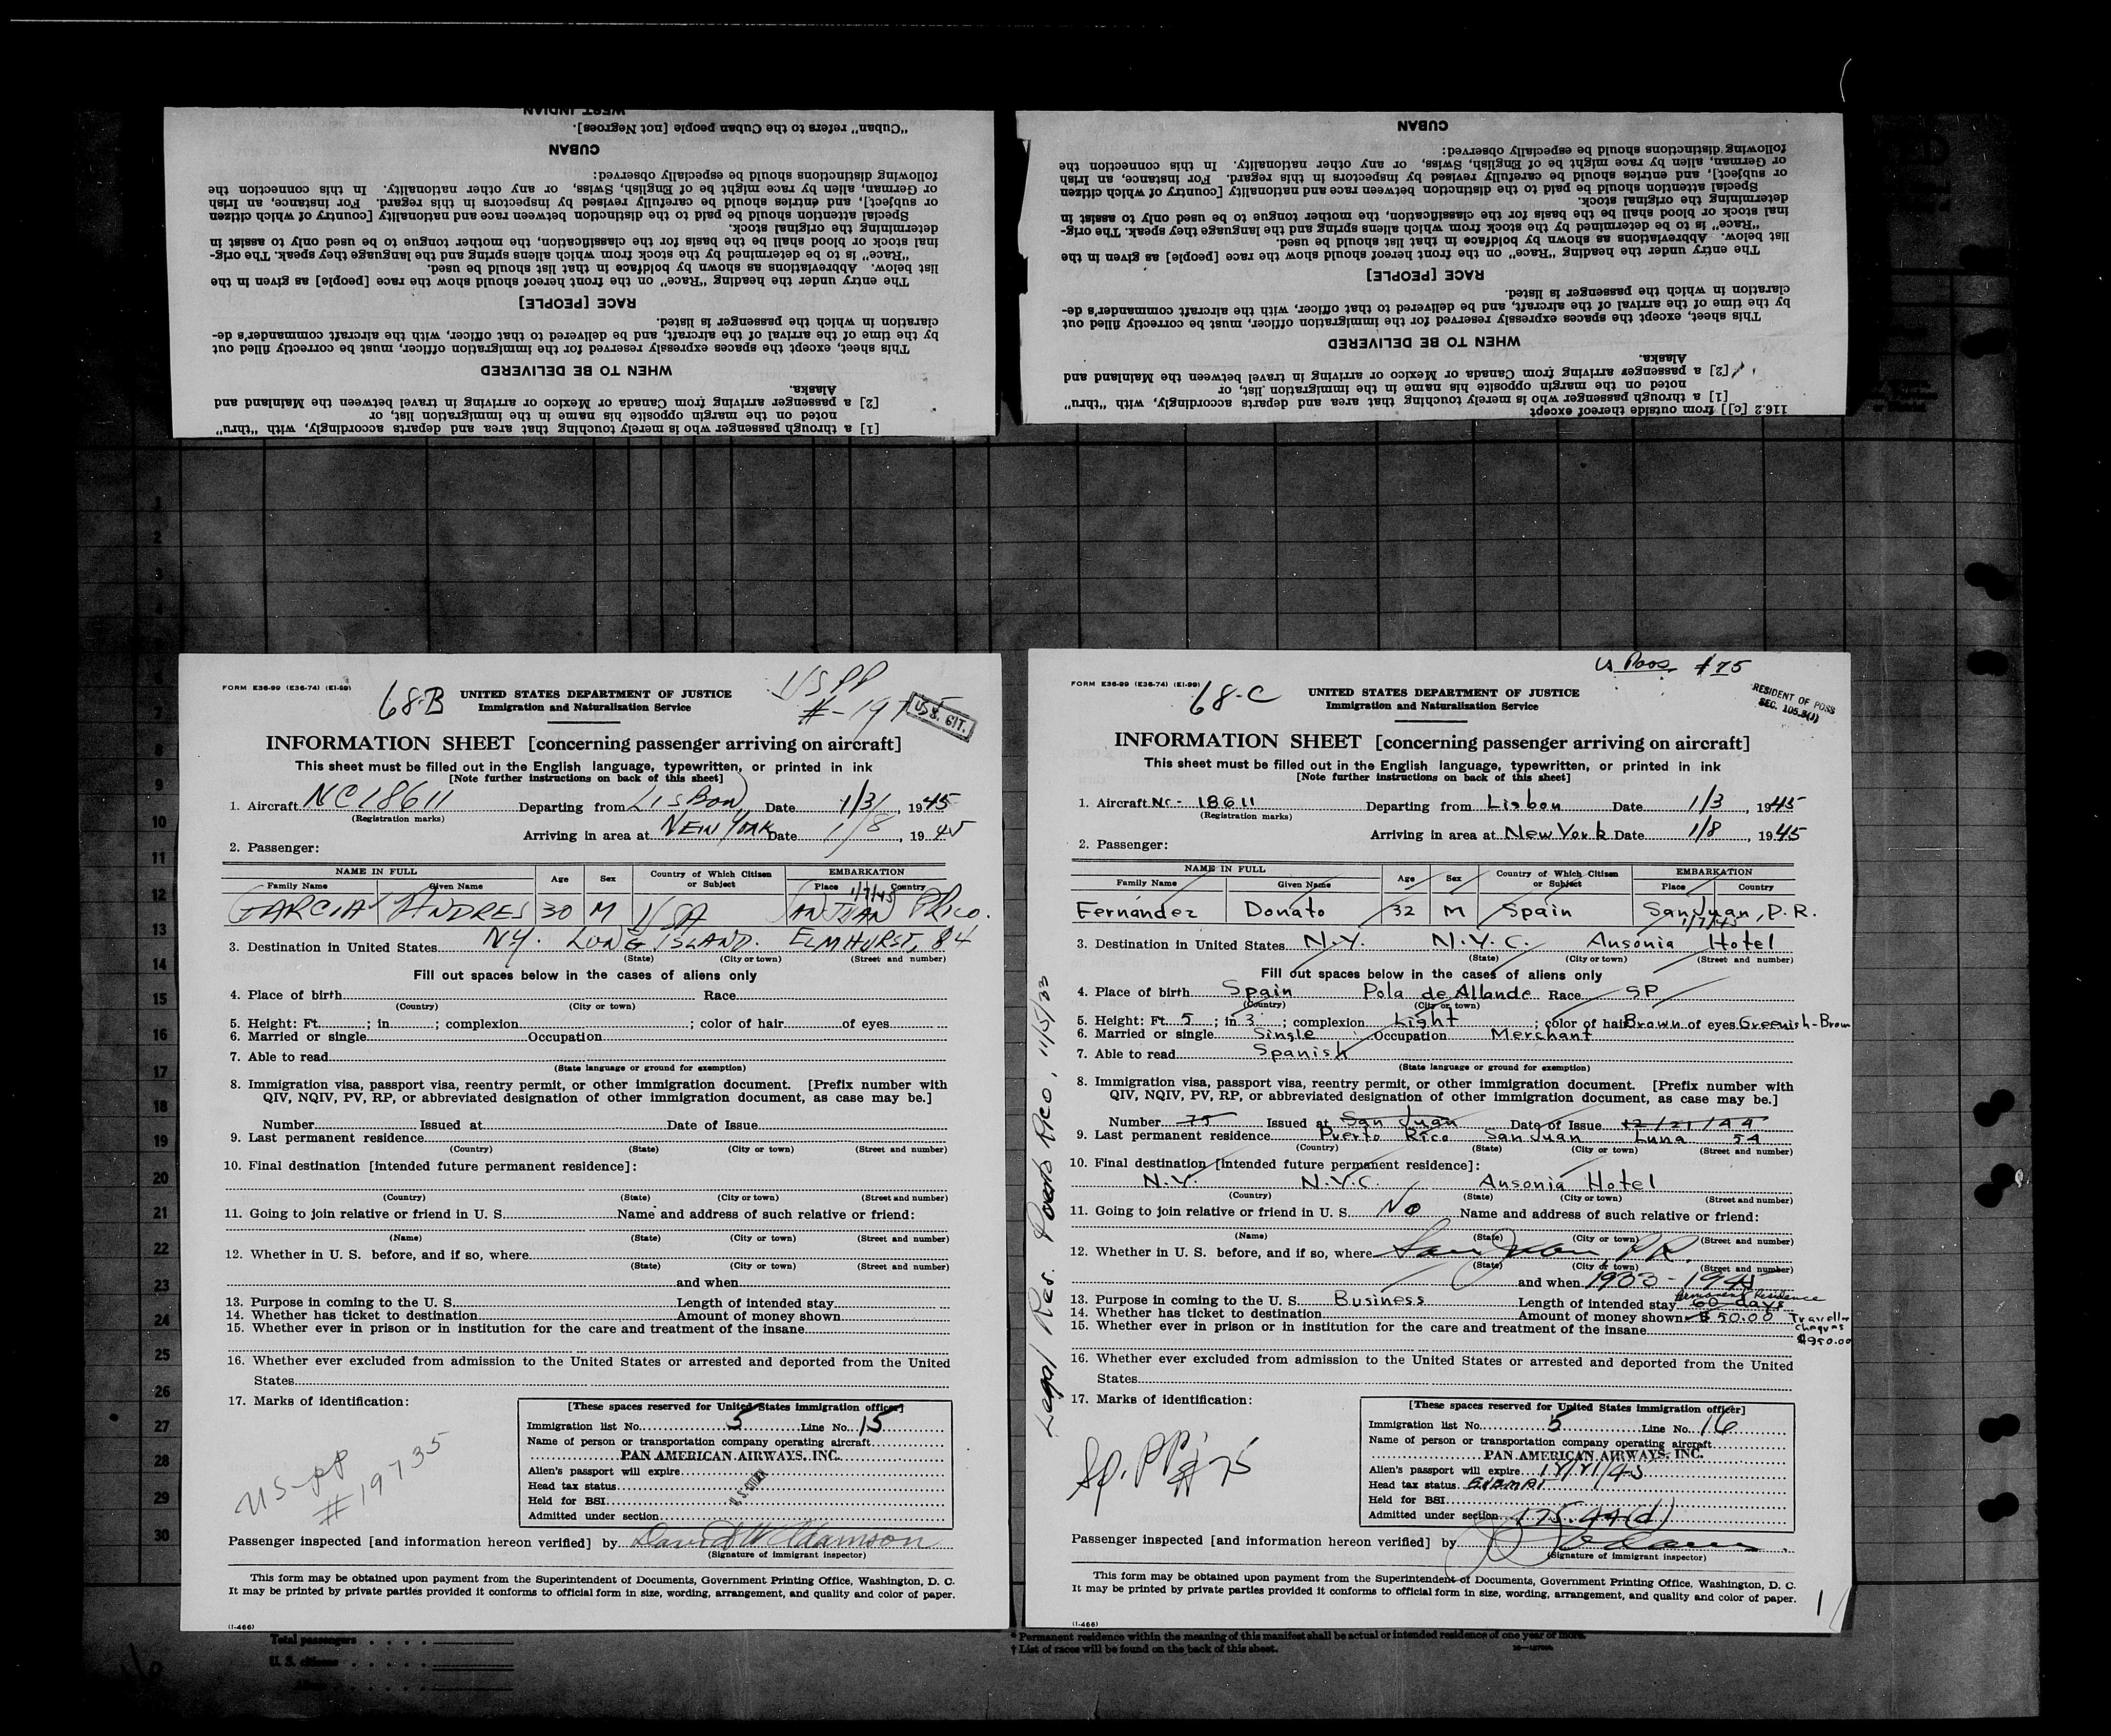 WEST INDIAN
"Cuban" refers to the Cuban people [not Negroes].
CUBAN
following distinctions should be especially observed:
or German, alien by race might be of English, Swiss, or any other nationality. In this connection the
or subject], and entries should be carefully revised by inspectors in this regard. For instance, an Irish
Special attention should be paid to the distinction between race and nationality [country of which citizen
determining the original stock.
inal stock or blood shall be the basis for the classification, the mother tongue to be used only to assist in
"Race" is to be determined by the stock from which aliens spring and the language they speak. The orig-
list below. Abbreviations as shown by boldface in that list should be used.
The entry under the heading "Race" on the front hereof should show the race [people] as given in the
RACE [PEOPLE]
claration in which the passenger is listed.
by the time of the arrival of the aircraft, and be delivered to that officer, with the aircraft commander's de-
This sheet, except the spaces expressly reserved for the immigration officer, must be correctly filled out
WHEN TO BE DELIVERED
Alaska.
[2] a passenger arriving from Canada or Mexico or arriving in travel between the Mainland and
noted on the margin opposite his name in the immigration list, or
[1] a through passenger who is merely touching that area and departs accordingly, with "thru"
CUBAN
following distinctions should be especially observed:
or German, alien by race might be of English, Swiss, or any other nationality. In this connection the
or subject], and entries should be carefully revised by inspectors in this regard. For instance, an Irish
Special attention should be paid to the distinction between race and nationality [country of which citizen
determining the original stock.
inal stock or blood shall be the basis for the classification, the mother tongue to be used only to assist in
"Race" is to be determined by the stock from which aliens spring and the language they speak. The orig-
list below. Abbreviations as shown by boldface in that list should be used.
The entry under the heading "Race" on the front hereof should show the race [people] as given in the
RACE [PEOPLE]
claration in which the passenger is listed.
by the time of the arrival of the aircraft, and be delivered to that officer, with the aircraft commander's de-
This sheet, except the spaces expressly reserved for the immigration officer, must be correctly filled out
WHEN TO BE DELIVERED
Alaska.
[2] a passenger arriving from Canada or Mexico or arriving in travel between the Mainland and
noted on the margin opposite his name in the immigration list, or
[1] a through passenger who is merely touching that area and departs accordingly, with "thru"
116.2 [c]] from outside thereof except
FORM E36-99 (E36-74) (E1-99)
68-B
UNITED STATES DEPARTMENT OF JUSTICE
Immigration and Naturalization Service
US PP
#-197
U.S. CIT.
INFORMATION SHEET [concerning passenger arriving on aircraft]
This sheet must be filled out in the English language, typewritten, or printed in ink
[Note further instructions on back of this sheet]
1. Aircraft NC18611 Departing from LISBON Date 1/3/, 1945
(Registration marks)
Arriving in area at NEW YORK Date 1/8, 1945
2. Passenger:
NAME IN FULL Age Sex Country of Which Citizen or Subject EMBARKATION
Family Name Given Name Place Country
1/7/45
GARCIA ANDRES 30 M USA SAN JUAN P RICO.
3. Destination in United States NY. LONG ISLAND. ELMHURST, 84
(State) (City or town) (Street and number)
Fill out spaces below in the cases of aliens only
4. Place of birth Race
(Country) (City or town)
5. Height: Ft. ; in ; complexion ; color of hair of eyes
6. Married or single Occupation
7. Able to read
(State language or ground for exemption)
8. Immigration visa, passport visa, reentry permit, or other immigration document. [Prefix number with
QIV, NQIV, PV, RP, or abbreviated designation of other immigration document, as case may be.]
Number Issued at Date of Issue
9. Last permanent residence
(Country) (State) (City or town) (Street and number)
10. Final destination [intended future permanent residence]:
(Country) (State) (City or town) (Street and number)
11. Going to join relative or friend in U. S. Name and address of such relative or friend:
(Name) (State) (City or town) (Street and number)
12. Whether in U. S. before, and if so, where
(State) (City or town) (Street and number)
and when
13. Purpose in coming to the U. S. Length of intended stay
14. Whether has ticket to destination Amount of money shown
15. Whether ever in prison or in institution for the care and treatment of the insane
16. Whether ever excluded from admission to the United States or arrested and deported from the United
States
17. Marks of identification:
[These spaces reserved for United States immigration officer]
Immigration list No. 5 Line No. 15
Name of person or transportation company operating aircraft
PAN AMERICAN AIRWAYS, INC.
Alien's passport will expire
Head tax status
Held for BSI
Admitted under section
U. S. CITIZEN
US-PP
#19735
Passenger inspected [and information hereon verified] by David W Adamson
(Signature of immigrant inspector)
This form may be obtained upon payment from the Superintendent of Documents, Government Printing Office, Washington, D. C.
It may be printed by private parties provided it conforms to official form in size, wording, arrangement, and quality and color of paper.
(I-466)
FORM E36-99 (E36-74) (E1-99)
68-C
UNITED STATES DEPARTMENT OF JUSTICE
Immigration and Naturalization Service
US Poss #75
RESIDENT OF POSS
SEC. 105.3(J)
INFORMATION SHEET [concerning passenger arriving on aircraft]
This sheet must be filled out in the English language, typewritten, or printed in ink
[Note further instructions on back of this sheet]
1. Aircraft NC- 18611 Departing from Lisbon Date 1/3, 1945
(Registration marks)
Arriving in area at New York Date 1/8, 1945
2. Passenger:
NAME IN FULL Age Sex Country of Which Citizen or Subject EMBARKATION
Family Name Given Name Place Country
Fernandez Donato 32 M Spain San Juan, P.R.
1/7/45
3. Destination in United States N.Y. N.Y.C. Ansonia Hotel
(State) (City or town) (Street and number)
Fill out spaces below in the cases of aliens only
4. Place of birth Spain Pola de Allande Race SP
(Country) (City or town)
5. Height: Ft. 5 ; in 3 ; complexion Light ; color of hair Brown of eyes Greenish-Brown
6. Married or single Single Occupation Merchant
7. Able to read Spanish
(State language or ground for exemption)
8. Immigration visa, passport visa, reentry permit, or other immigration document. [Prefix number with
QIV, NQIV, PV, RP, or abbreviated designation of other immigration document, as case may be.]
Number 75 Issued at San Juan Date of Issue 12/21/44
9. Last permanent residence Puerto Rico San Juan Luna 54
(Country) (State) (City or town) (Street and number)
10. Final destination [intended future permanent residence]:
N.Y. N.Y.C. Ansonia Hotel
(Country) (State) (City or town) (Street and number)
11. Going to join relative or friend in U. S. No Name and address of such relative or friend:
(Name) (State) (City or town) (Street and number)
12. Whether in U. S. before, and if so, where San Juan PR.
(State) (City or town) (Street and number)
and when 1933 - 1945
13. Purpose in coming to the U. S. Business Length of intended stay 60 days Permanent Residence
14. Whether has ticket to destination Amount of money shown $50.00 Traveller Cheques $950.00
15. Whether ever in prison or in institution for the care and treatment of the insane
16. Whether ever excluded from admission to the United States or arrested and deported from the United
States
17. Marks of identification:
[These spaces reserved for United States immigration officer]
Immigration list No. 5 Line No. 16
Name of person or transportation company operating aircraft
PAN AMERICAN AIRWAYS, INC.
Alien's passport will expire 12/21/45
Head tax status exempt
Held for BSI
Admitted under section 175.44(d)
Sp. PP. #75
Legal Res. Puerto Rico, 11/5/33
Passenger inspected [and information hereon verified] by
(Signature of immigrant inspector)
This form may be obtained upon payment from the Superintendent of Documents, Government Printing Office, Washington, D. C.
It may be printed by private parties provided it conforms to official form in size, wording, arrangement, and quality and color of paper.
(I-466)
1
2
3
4
6
7
8
9
10
11
12
13
14
15
16
17
18
19
20
21
22
23
24
25
26
27
28
29
30
Total passengers
U. S. citizens
* Permanent residence within the meaning of this manifest shall be actual or intended residence of one year or more.
† List of races will be found on the back of this sheet.